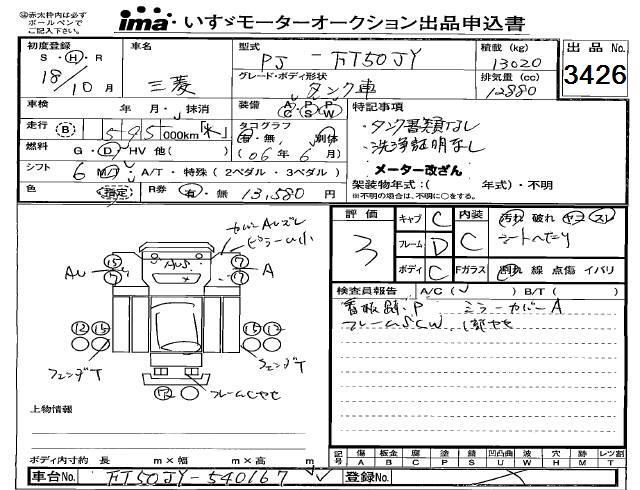 ㊟赤太枠内は必ず
ボールペンで
ご記入下さい。
ima いすゞモーターオークション出品申込書
初度登録
S・H・R
18/10月
車名
三菱
型式
PJ-FT50JY
グレード・ボディ形状
タンク車
積載(kg)
13020
排気量(cc)
12880
出品No.
3426
車検 年 月・抹消
走行 (B) 1545000km
燃料 G・D・HV 他( )
シフト 6 M/T・A/T・特殊(2ペダル・3ペダル)
色 指定
R券 有・無 13,580円
装備 A/C P/S P/W
タコグラフ
有・無、別体
(06年6月)
特記事項
・タンク書類なし
・洗浄証明なし
メーター改ざん
架装物年式:( 年式)・不明
※不明の場合は、不明に○をする。
評価
3
キャブ C
フレーム D
ボディ C
内装 C
汚れ 破れ ヤコ スレ
シートへたり
Fガラス
割れ 線 点傷 イバリ
検査員報告 A/C( ) B/T( )
看板跡・P ミラーカバーA
AU
AUS
A
15
7
15
7
12 15
15 12
フェンダT
フェンダT
フレームC
上物情報
ボディ内寸約 長 m×幅 m×高 m
記号
傷 A
板金 B
腐 C
塗 P
錆 S
凹凸曲 U
波 W
穴 H
跡 M
レツ割 T
車台No. FT50JY-540167
登録No.